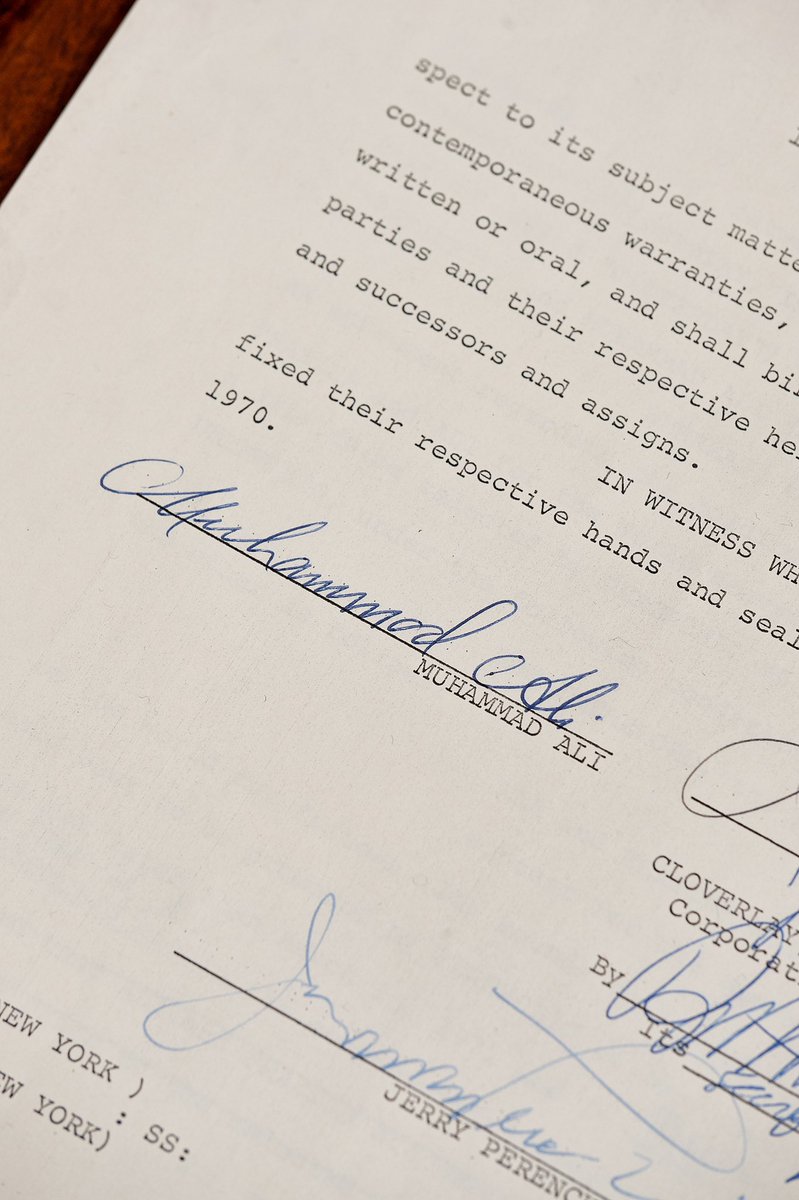 spect to its subject matte
contemporaneous warranties,
written or oral, and shall bi
parties and their respective he
and successors and assigns.
IN WITNESS WH
fixed their respective hands and seal
1970.
Muhammad Ali
MUHAMMAD ALI
CLOVERLAY
Corporat
By
Its
JERRY PERENC
NEW YORK )
: SS:
EW YORK)